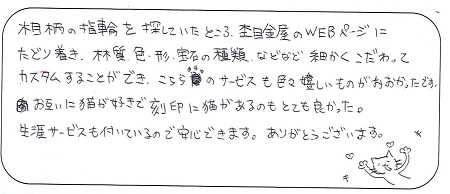 木目柄の指輪を探していたところ、杢目金屋のWEBページに
たどり着き、材質、色・形、宝石の種類、などなど細かくこだわって
カスタムすることができ、こちらのサービスも色々嬉しいものがおおかったです。
お互いに猫が好きで刻印に猫があるのもとても良かった。
生涯サービスも付いているので安心できます。ありがとうございます。